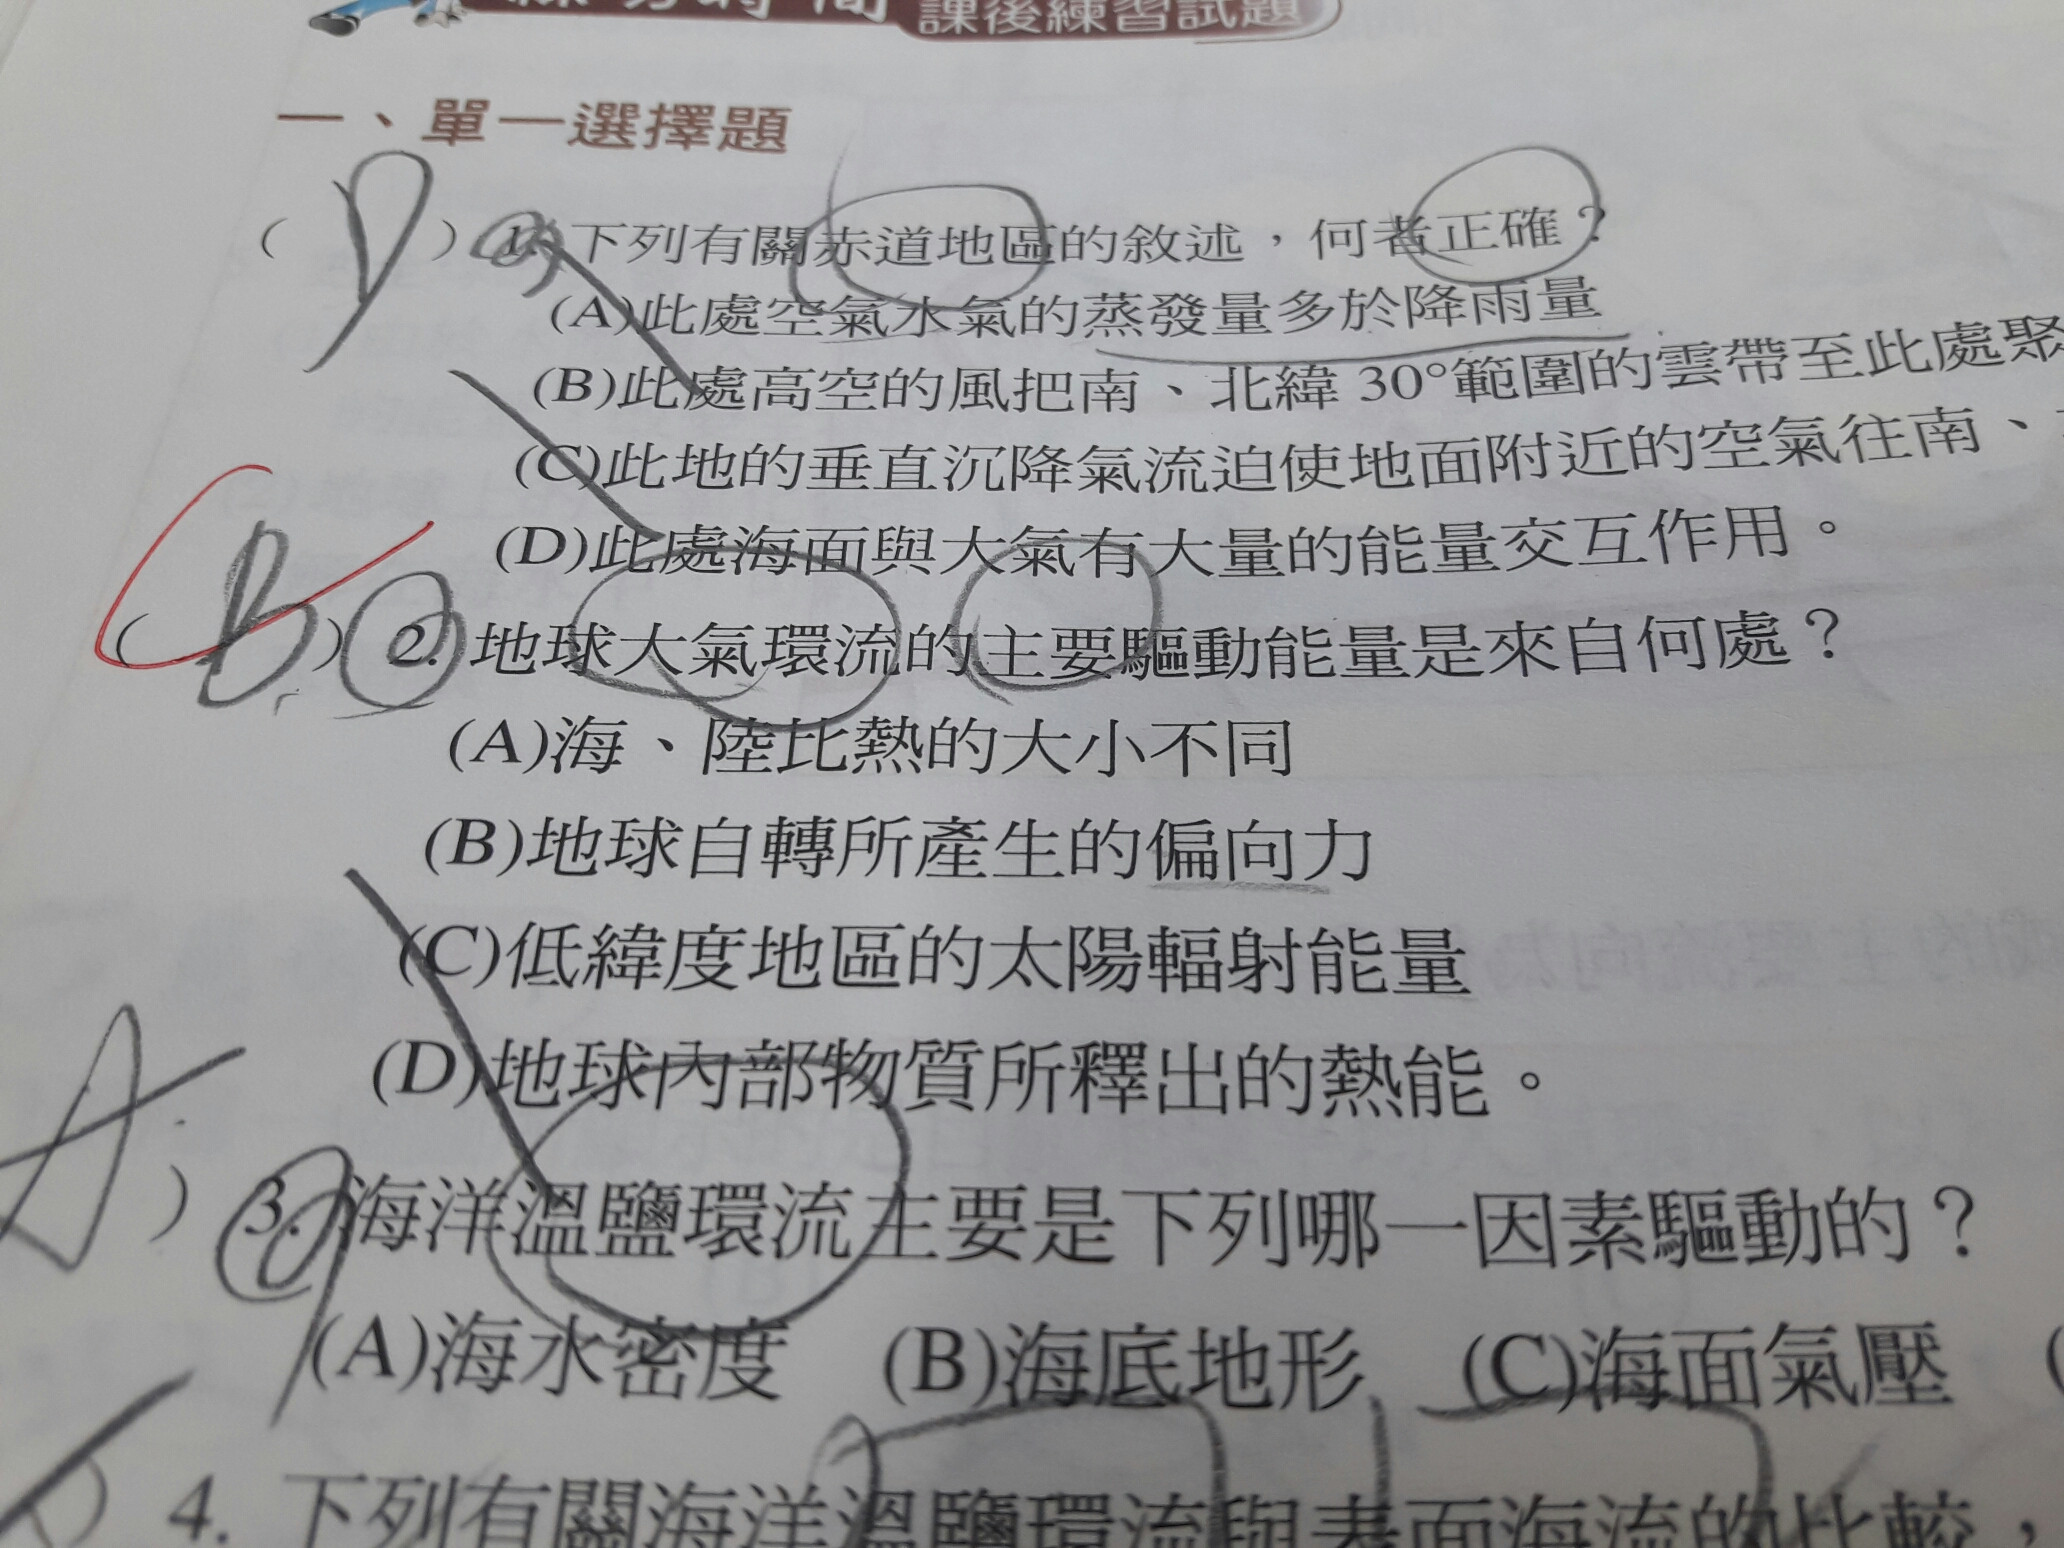 課後練習試題
一、單一選擇題
( D ) 1. 下列有關赤道地區的敘述，何者正確？
(A)此處空氣水氣的蒸發量多於降雨量
(B)此處高空的風把南、北緯 30°範圍的雲帶至此處聚
(C)此地的垂直沉降氣流迫使地面附近的空氣往南、
(D)此處海面與大氣有大量的能量交互作用。
( B ) 2. 地球大氣環流的主要驅動能量是來自何處？
(A)海、陸比熱的大小不同
(B)地球自轉所產生的偏向力
(C)低緯度地區的太陽輻射能量
(D)地球內部物質所釋出的熱能。
A ) 3. 海洋溫鹽環流主要是下列哪一因素驅動的？
(A)海水密度 (B)海底地形 (C)海面氣壓 (
) 4. 下列有關海洋溫鹽環流與表面海流的比較，